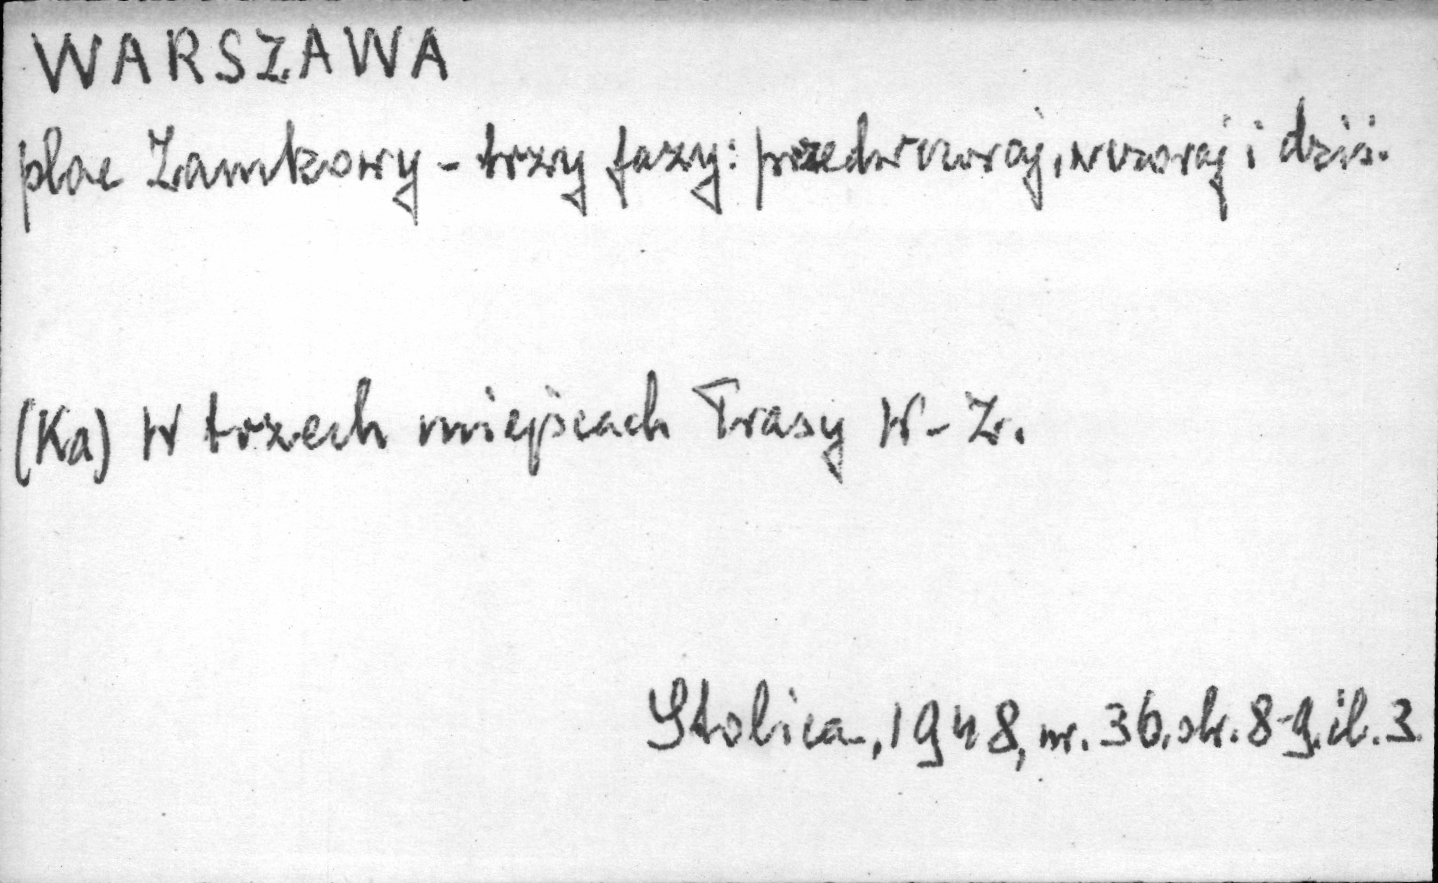 WARSZAWA
plac Zamkowy - trzy fazy: przedwczoraj, wczoraj i dziś.
(Ka) W trzech miejscach Trasy W-Z.
Stolica, 1948, nr. 36. str. 8-9. il. 3.